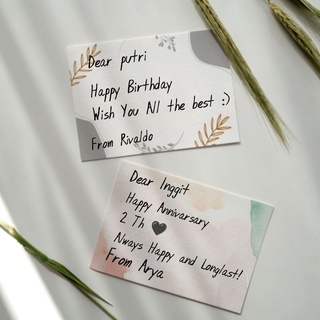 Dear putri
Happy Birthday
Wish You All the best :)
From Rivaldo
Dear Inggit
Happy Annivarsary
2 Th 🖤
Always Happy and Longlast!
From Arya